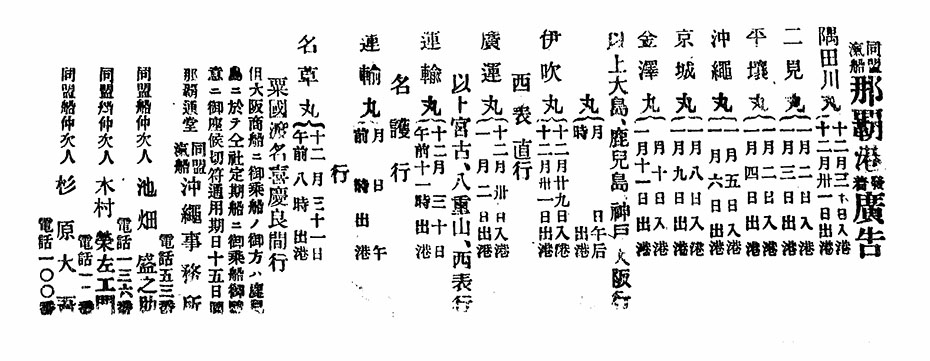 同盟汽船那覇港發着廣告
隅田川丸 十二月三十日入港 十二月卅一日出港
二見丸 一月二日入港 一月三日出港
平壤丸 一月二日入港 一月四日出港
沖繩丸 一月五日入港 一月六日出港
京城丸 一月八日入港 一月十日出港
金澤丸 一月十一日出港
以上大島、鹿兒島、神戸大阪行
丸 月 日午后 時 出港
伊吹丸 十二月廿九日入港 十二月卅一日出港
西表直行
廣運丸 十二月卅日入港 一月二日出港
以上宮古、八重山、西表行
運輸丸 十二月三十日 午前十一時出港
名護行
運輸丸 月 日 午前 時出港
行
名草丸 十二月三十一日 午前八時出港
粟國渡名喜慶良間行
但大阪商船ニ御乘船ノ御方ハ鹿兒
島ニ於テ仝社定期船ニ御乘船御隨
意ニ御座候切符通用期日十五日間
那覇通堂 同盟汽船沖繩事務所
電話五三番
同盟船仲次人 池畑盛之助
電話一三六番
同盟船仲次人 木村榮左工門
電話一一番
同盟船仲次人 杉原大
電話一〇〇番